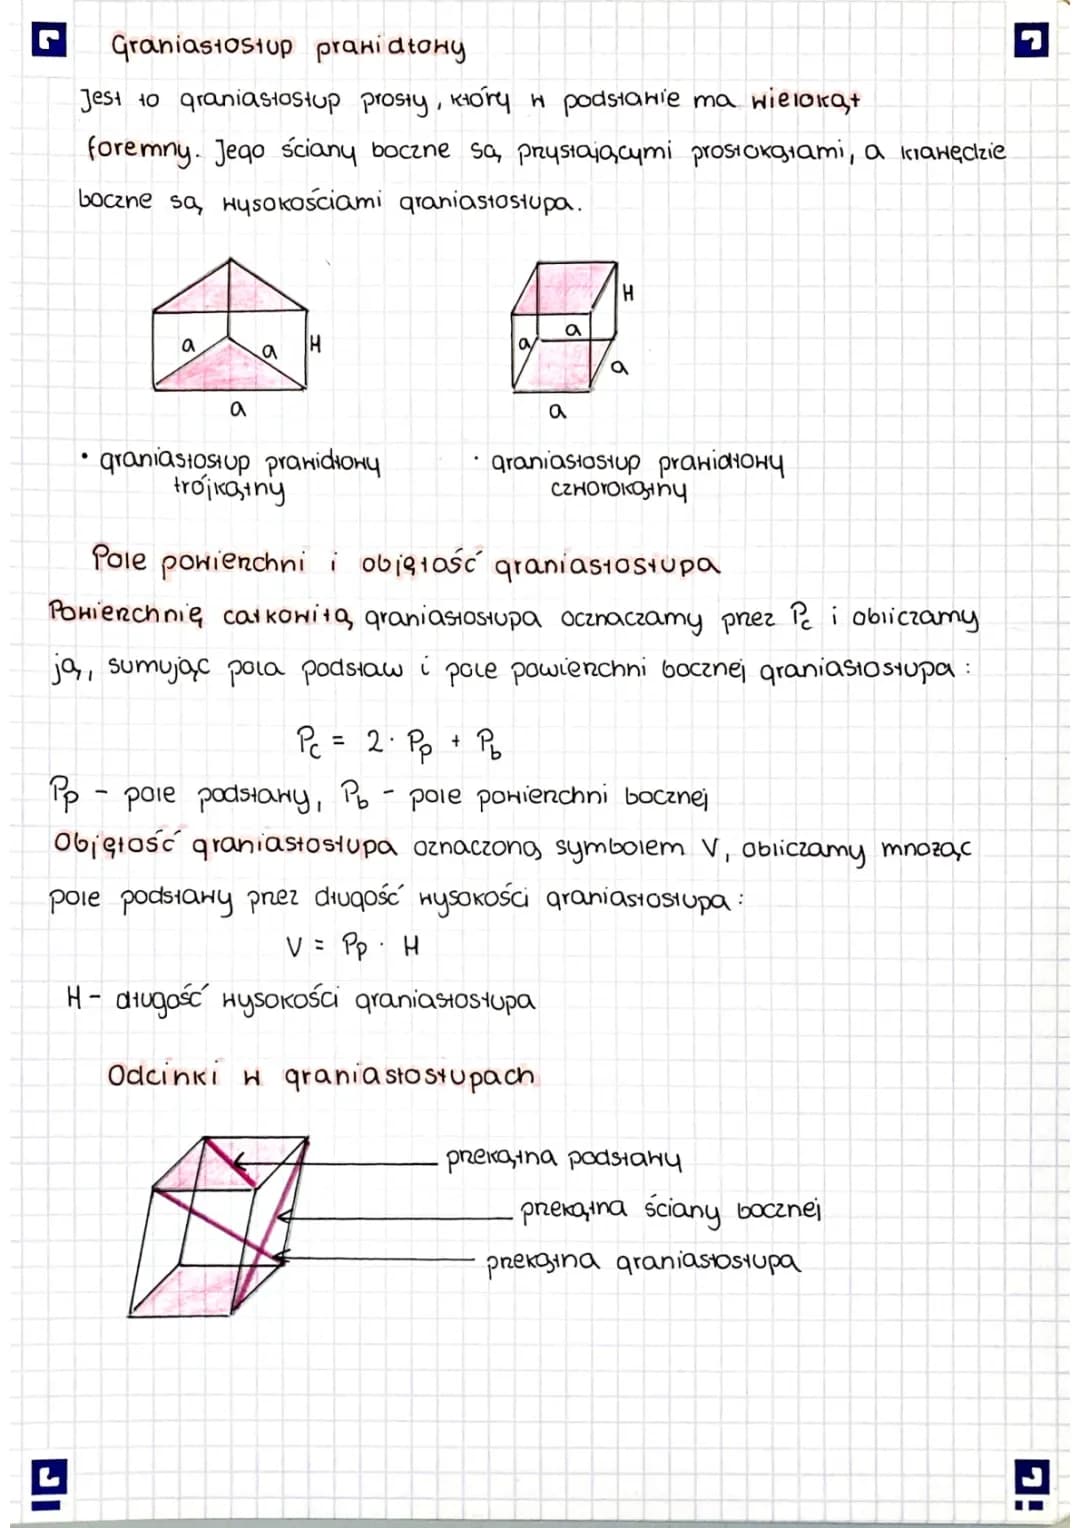 Graniastosłup prawidłowy
Jest to graniastosłup prosty, który w podstawie ma wielokąt
foremny. Jego ściany boczne są przystającymi prostokątami, a krawędzie
boczne są wysokościami graniastosłupa.
H
a a H a a a
a a
• graniastosłup prawidłowy • graniastosłup prawidłowy
trójkątny czworokątny
Pole powierzchni i objętość graniastosłupa
Powierzchnię całkowitą graniastosłupa ocznaczamy przez Pc i obliczamy
ją, sumując pola podstaw i pole powierzchni bocznej graniastosłupa:
Pc = 2 · Pp + Pb
Pp - pole podstawy, Pb - pole powierzchni bocznej
Objętość graniastosłupa oznaczoną symbolem V, obliczamy mnożąc
pole podstawy przez długość wysokości graniastosłupa:
V = Pp · H
H - długość wysokości graniastosłupa
Odcinki w graniastosłupach
przekątna podstawy
przekątna ściany bocznej
przekątna graniastosłupa